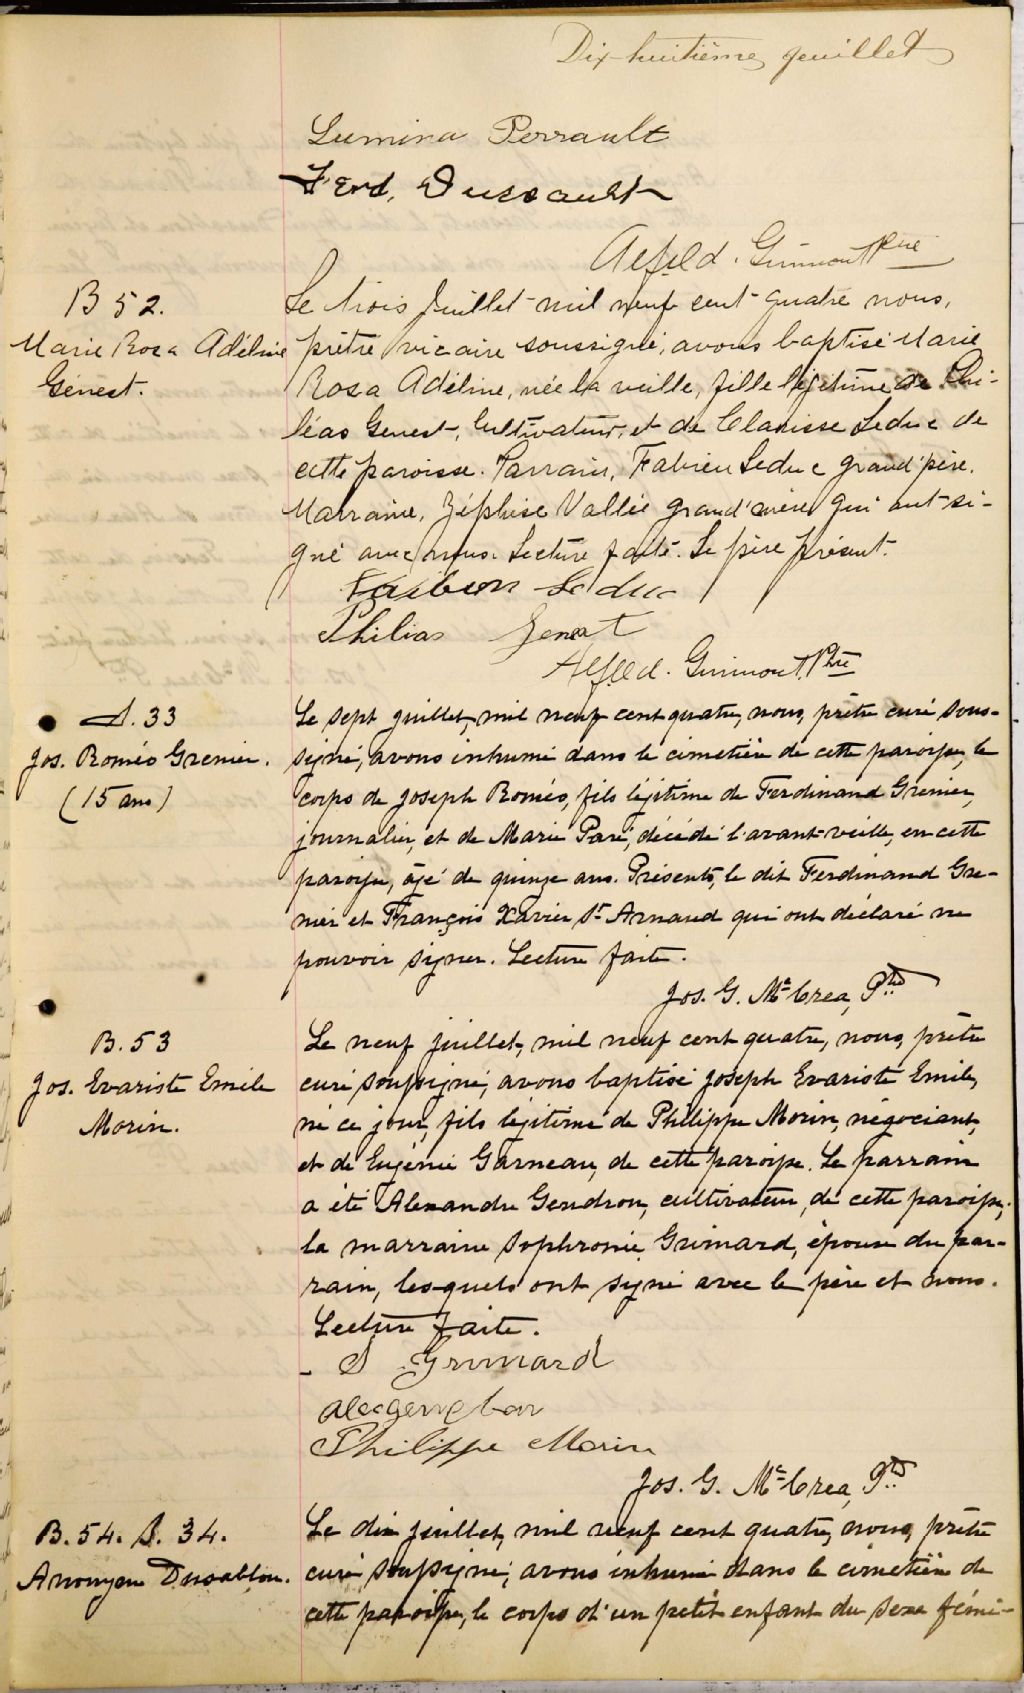 Dix-huitième feuillet
Lumina Perrault
Ferd. Dussault
Alfred. Grimont Ptre
B 52.
Marie Rosa Adéline
Genest.
Le trois Juillet mil neuf cent quatre nous,
prêtre vicaire soussigné, avons baptisé Marie
Rosa Adéline, née la veille, fille légitime de Phi-
léas Genest, Cultivateur, et de Clarisse Leduc de
cette paroisse. Parrain, Fabien Leduc grand'père.
Marraine, Zéphise Vallée grand'mère qui ont si-
gné avec nous. Lecture faite. Le père présent.
Faibien Leduc
Philias Genest
Alfred. Grimont, Ptre
S. 33
Jos. Roméo Grenier.
(15 ans)
Le sept juillet, mil neuf cent quatre, nous, prêtre curé sous-
signé, avons inhumé dans le cimetière de cette paroisse, le
corps de Joseph Roméo, fils légitime de Ferdinand Grenier,
journalier, et de Marie Paré, décédé l'avant-veille, en cette
paroisse, âgé de quinze ans. Présents, le dit Ferdinand Gre-
nier et François Xavier St Arnaud qui ont déclaré ne
pouvoir signer. Lecture faite.
Jos. G. McCrea, Ptre
B. 53
Jos. Evariste Emile
Morin.
Le neuf juillet, mil neuf cent quatre, nous, prêtre
curé soussigné, avons baptisé Joseph Evariste Emile,
né ce jour, fils légitime de Philippe Morin, négociant,
et de Eugénie Garneau, de cette paroisse. Le parrain
a été Alexandre Gendron, cultivateur, de cette paroisse,
la marraine Sophronie Grimard, épouse du par-
rain, lesquels ont signé avec le père et nous.
Lecture faite.
S Grimard
Philippe Morin
Jos. G. McCrea, Ptre
B. 54. S. 34.
Anonyme Dusablon.
Le dix juillet, mil neuf cent quatre, nous, prêtre
curé soussigné, avons inhumé dans le cimetière de
cette paroisse, le corps d'un petit enfant du sexe fémi-